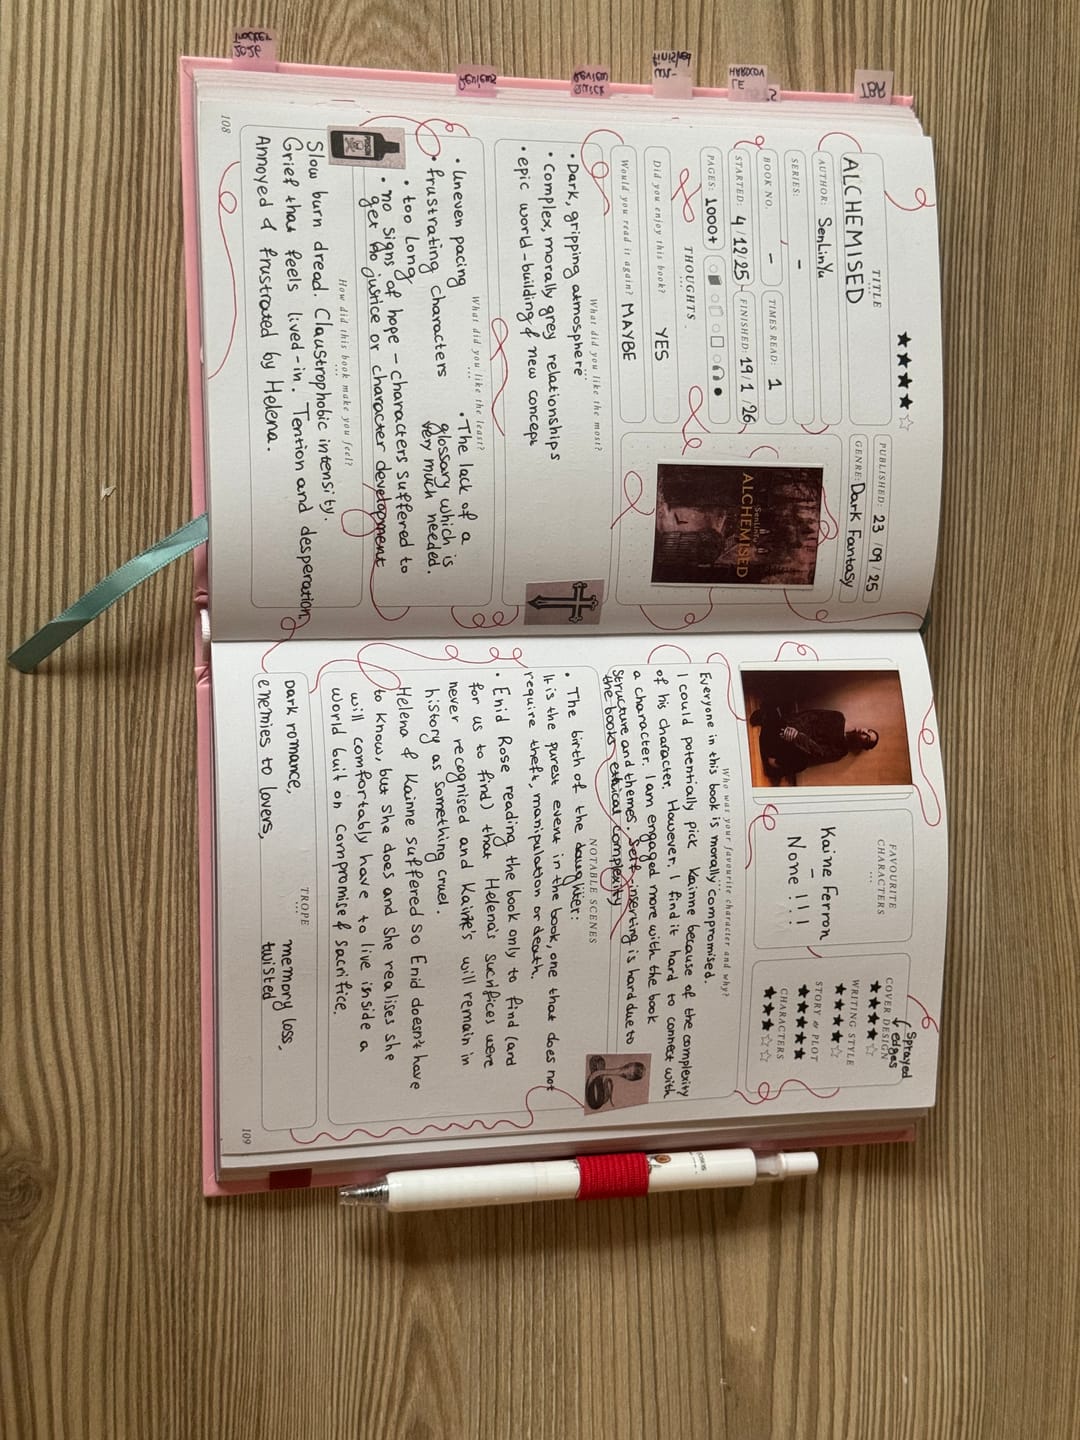 TBR
HARDCOV
LE
finished
Review
Quick
Reviews
Tracker
2026
TITLE
ALCHEMISED
AUTHOR: SenLinYu
SERIES: -
BOOK NO. -
TIMES READ: 1
STARTED: 4/12/25
FINISHED: 19/1/26
PAGES: 1000+
PUBLISHED: 23/09/25
GENRE: Dark Fantasy
SenLinYu
ALCHEMISED
THOUGHTS
Did you enjoy this book? YES
Would you read it again? MAYBE
What did you like the most?
• Dark, gripping atmosphere
• Complex, morally grey relationships
• epic world-building & new concept
What did you like the least?
• Uneven pacing
• frustrating characters
• too long
• no signs of hope - characters suffered to
get no justice or character development
• The lack of a
glossary which is
very much needed.
POISON
How did this book make you feel?
Slow burn dread. Claustrophobic intensity.
Grief that feels lived-in. Tention and desperation
Annoyed & frustrated by Helena.
108
FAVOURITE
CHARACTERS
Kaine Ferron
-
None!!!!
Sprayed
edges
COVER DESIGN
WRITING STYLE
STORY & PLOT
CHARACTERS
Who was your favourite character and why?
Everyone in this book is morally compromised.
I could potentially pick Kainne because of the complexity
of his character. However, I find it hard to connect with
a character. I am engaged more with the book
structure and themes. Self-inserting is hard due to
the books ethical complexity
NOTABLE SCENES
• The birth of the daughter:
It is the purest event in the book, one that does not
require theft, manipulation or death.
• Enid Rose reading the book only to find (and
for us to find) that Helena's sucrifices were
never recognised and Kaine's will remain in
history as something cruel.
Helena & Kainne suffered so Enid doesn't have
to know, but she does and she realises she
will comfortably have to live inside a
world built on compromise & sacrifice.
TROPE
Dark romance,
enemies to lovers,
memory loss,
twisted
109